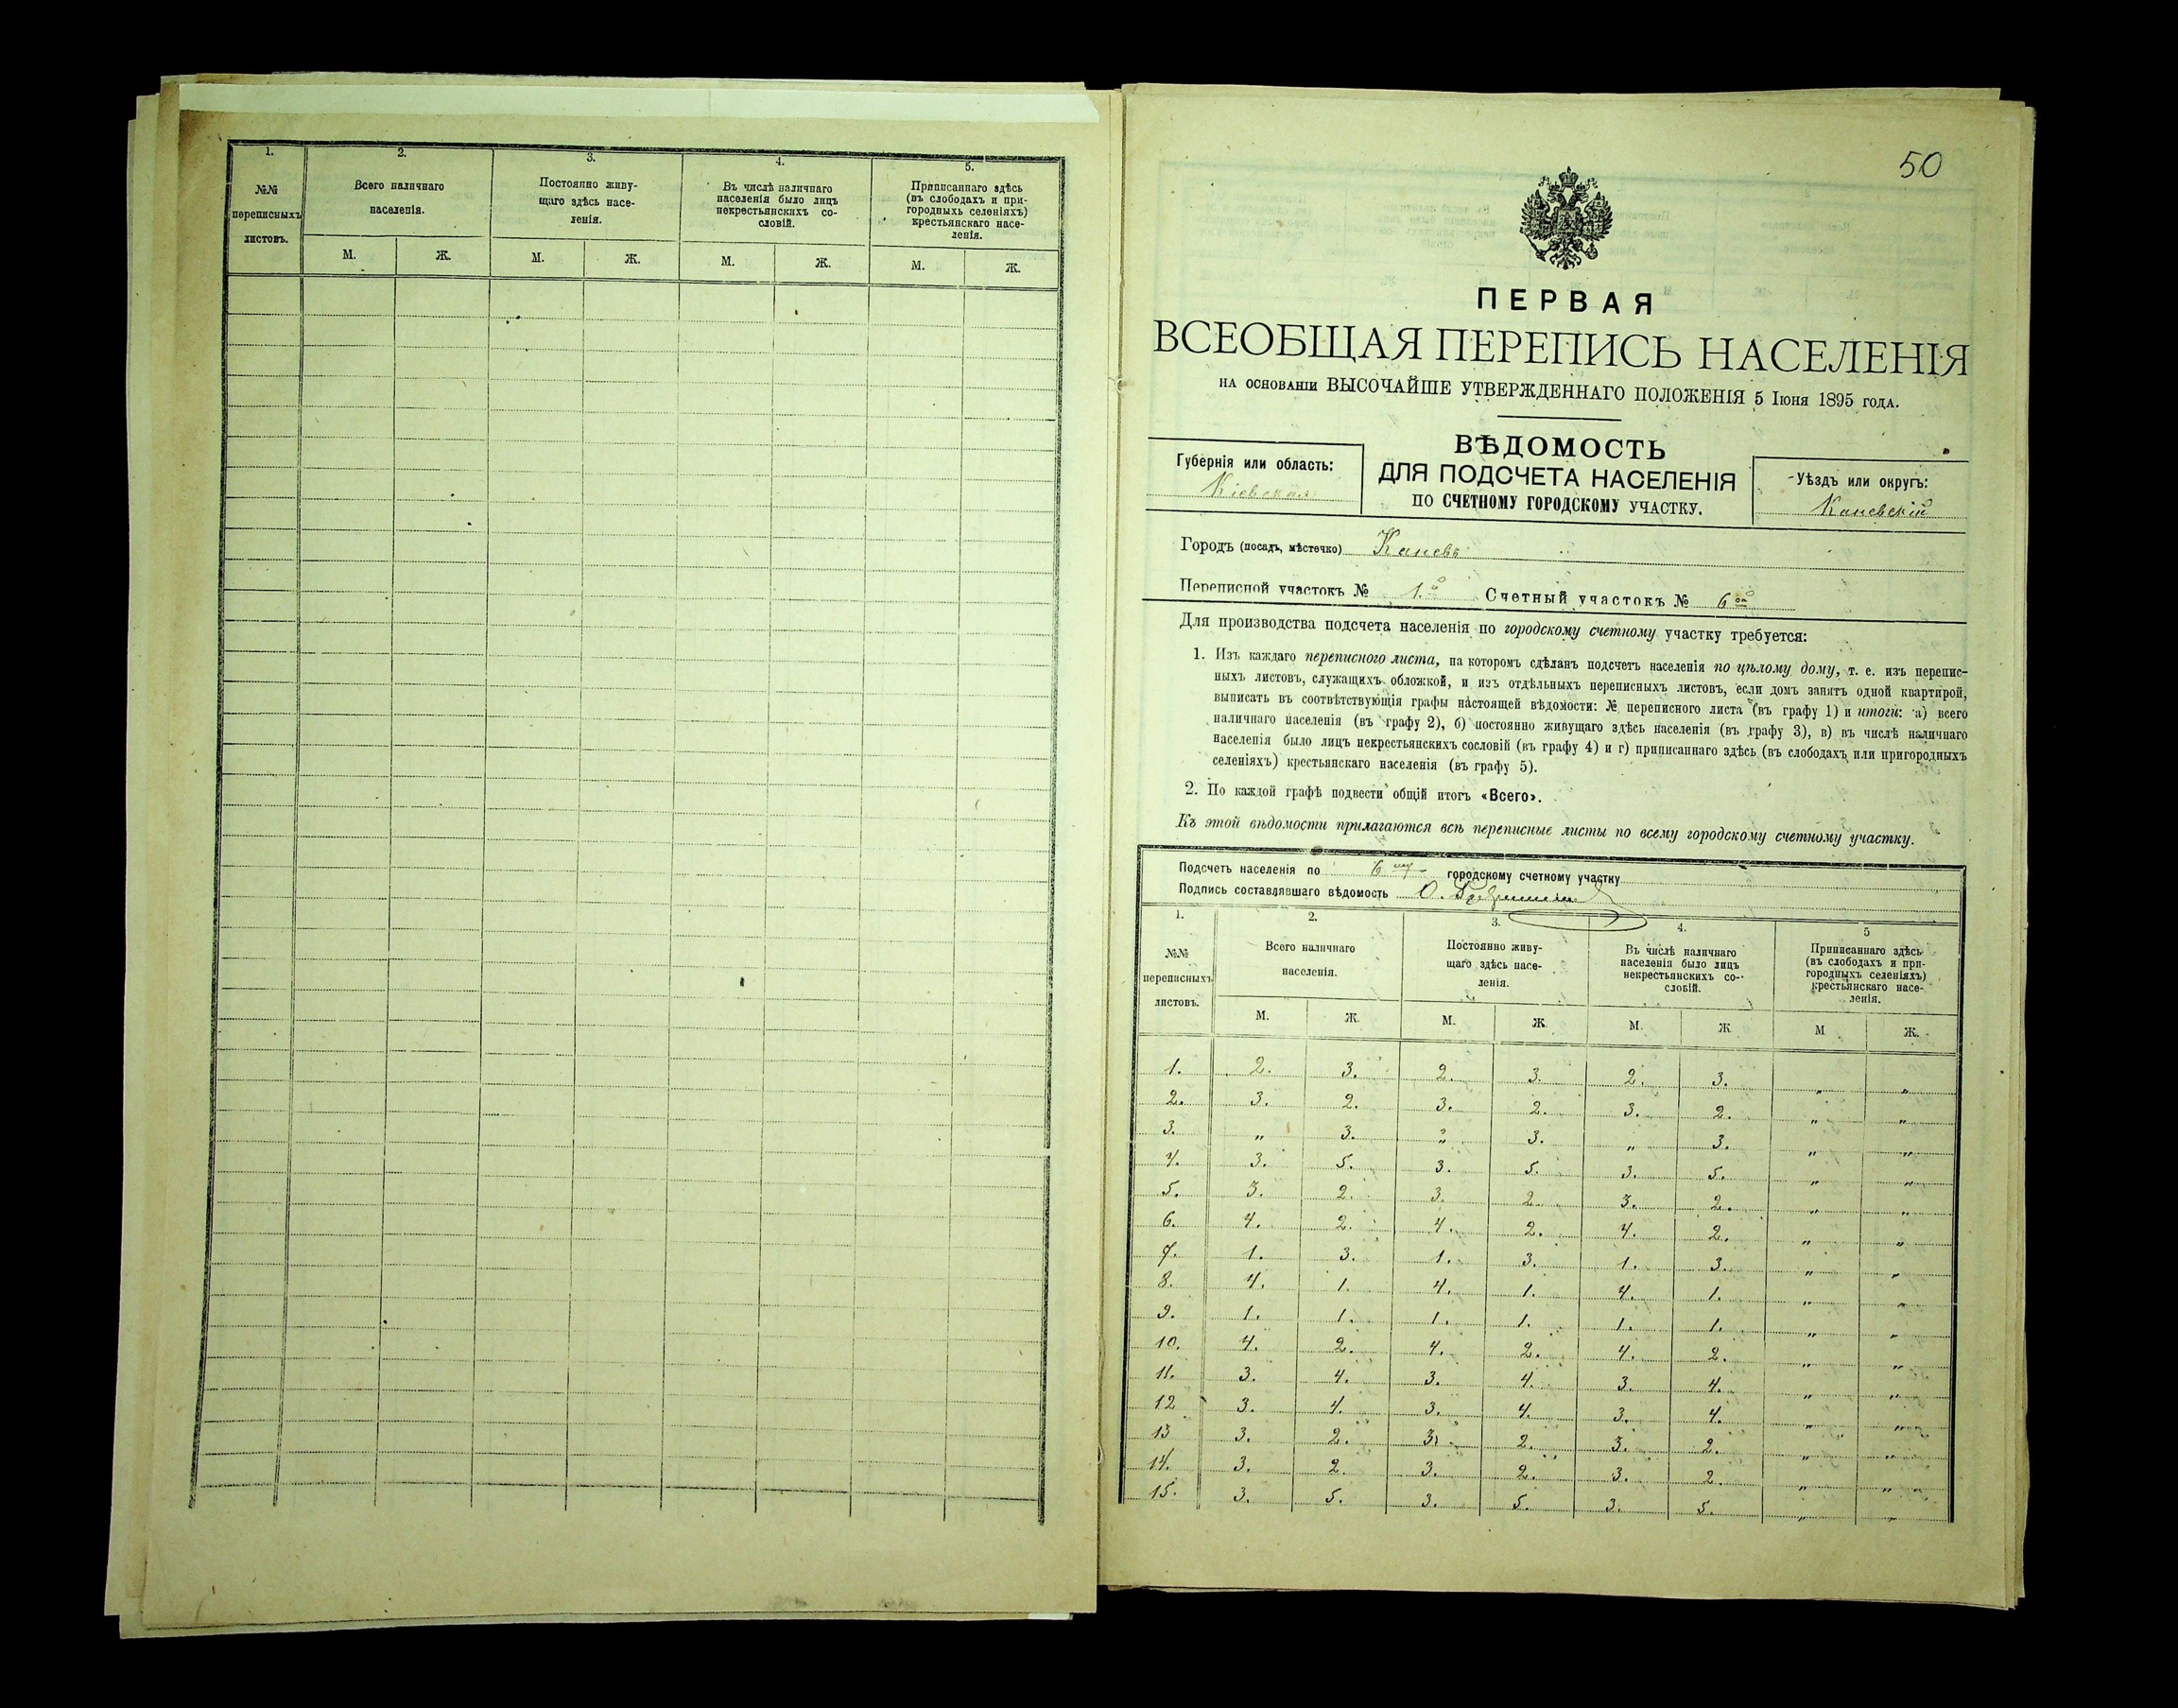 1.
2.
3.
4.
5.
№№
переписныхъ
листовъ.
Всего наличнаго
населенія.
Постоянно живу-
щаго здѣсь насе-
ленія.
Въ числѣ наличнаго
населенія было лицъ
некрестьянскихъ со-
словій.
Приписаннаго здѣсь
(въ слободахъ и при-
городныхъ селеніяхъ)
крестьянскаго насе-
ленія.
М. Ж. М. Ж. М. Ж. М. Ж.
50
ПЕРВАЯ
ВСЕОБЩАЯ ПЕРЕПИСЬ НАСЕЛЕНІЯ
НА ОСНОВАНІИ ВЫСОЧАЙШЕ УТВЕРЖДЕННАГО ПОЛОЖЕНІЯ 5 Іюня 1895 ГОДА.
Губернія или область:
Кіевская
ВѢДОМОСТЬ
ДЛЯ ПОДСЧЕТА НАСЕЛЕНІЯ
ПО СЧЕТНОМУ ГОРОДСКОМУ УЧАСТКУ.
Уѣздъ или округъ:
Каневскій
Городъ (посадъ, мѣстечко) Каневъ
Переписной участокъ № 1.й Счетный участокъ № 6ой
Для производства подсчета населенія по городскому счетному участку требуется:
1. Изъ каждаго переписного листа, на которомъ сдѣланъ подсчетъ населенія по цѣлому дому, т. е. изъ перепис-
ныхъ листовъ, служащихъ обложкой, и изъ отдѣльныхъ переписныхъ листовъ, если домъ занятъ одной квартирой,
выписать въ соотвѣтствующія графы настоящей вѣдомости: № переписного листа (въ графу 1) и итоги: а) всего
наличнаго населенія (въ графу 2), б) постоянно живущаго здѣсь населенія (въ графу 3), в) въ числѣ наличнаго
населенія было лицъ некрестьянскихъ сословій (въ графу 4) и г) приписаннаго здѣсь (въ слободахъ или пригородныхъ
селеніяхъ) крестьянскаго населенія (въ графу 5).
2. По каждой графѣ подвести общій итогъ «Всего».
Къ этой вѣдомости прилагаются всѣ переписные листы по всему городскому счетному участку.
Подсчетъ населенія по 6 му городскому счетному участку
Подпись составлявшаго вѣдомость О.
1.
2.
3.
4.
5
№№
переписныхъ
листовъ.
Всего наличнаго
населенія.
Постоянно живу-
щаго здѣсь насе-
ленія.
Въ числѣ наличнаго
населенія было лицъ
некрестьянскихъ со-
словій.
Приписаннаго здѣсь
(въ слободахъ и при-
городныхъ селеніяхъ)
крестьянскаго насе-
ленія.
М. Ж. М. Ж. М. Ж. М. Ж.
1. 2. 3. 2. 3. 2. 3. „ „
2. 3. 2. 3. 2. 3. 2. „ „
3. „ 3. „ 3. „ 3. „ „
4. 3. 5. 3. 5. 3. 5. „ „
5. 3. 2. 3. 2. 3. 2. „ „
6. 4. 2. 4. 2. 4. 2. „ „
7. 1. 3. 1. 3. 1. 3. „ „
8. 4. 1. 4. 1. 4. 1. „ „
9. 1. 1. 1. 1. 1. 1. „ „
10. 4. 2. 4. 2. 4. 2. „ „
11. 3. 4. 3. 4. 3. 4. „ „
12 3. 4. 3. 4. 3. 4. „ „
13 3. 2. 3. 2. 3. 2. „ „
14. 3. 2. 3. 2. 3. 2. „ „
15. 3. 5. 3. 5. 3. 5. „ „